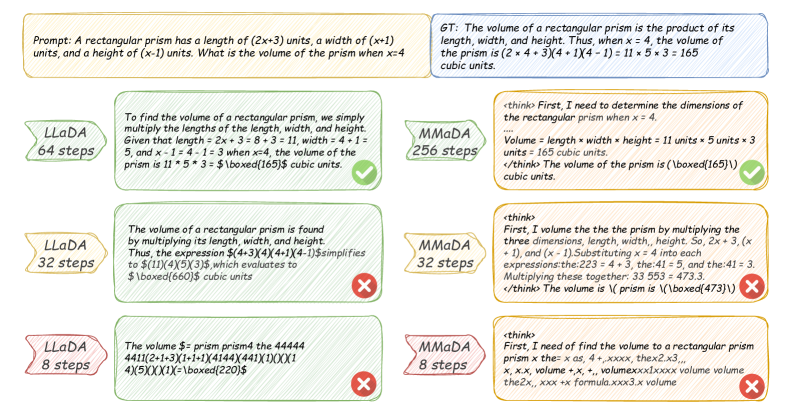 Prompt: A rectangular prism has a length of (2x+3) units, a width of (x+1)
units, and a height of (x-1) units. What is the volume of the prism when x=4
GT: The volume of a rectangular prism is the product of its
length, width, and height. Thus, when x = 4, the volume of
the prism is (2 × 4 + 3)(4 + 1)(4 − 1) = 11 × 5 × 3 = 165
cubic units.
LLaDA
64 steps
To find the volume of a rectangular prism, we simply
multiply the lengths of the length, width, and height.
Given that length = 2x + 3 = 8 + 3 = 11, width = 4 + 1 =
5, and x - 1 = 4 - 1 = 3 when x=4, the volume of the
prism is 11 * 5 * 3 = $\boxed{165}$ cubic units.
MMaDA
256 steps
<think> First, I need to determine the dimensions of
the rectangular prism when x = 4.
....
Volume = length × width × height = 11 units × 5 units × 3
units = 165 cubic units.
</think> The volume of the prism is (\boxed{165}\)
cubic units.
LLaDA
32 steps
The volume of a rectangular prism is found
by multiplying its length, width, and height.
Thus, the expression $(4+3)(4)(4+1)(4-1)$simplifies
to $(11)(4)(5)(3)$,which evaluates to
$\boxed{660}$ cubic units
MMaDA
32 steps
<think>
First, I volume the the the prism by multiplying the
three dimensions, length, width,, height. So, 2x + 3, (x
+ 1), and (x - 1).Substituting x = 4 into each
expressions:the:223 = 4 + 3, the:41 = 5, and the:41 = 3.
Multiplying these together: 33 553 = 473.3.
</think> The volume is \( prism is \(\boxed{473}\)
LLaDA
8 steps
The volume $= prism prism4 the 44444
4411(2+1+3)(1+1+1)(4144)(441)(1)()()(1
4)(5)()()(1)(=\boxed{220}$
MMaDA
8 steps
<think>
First, I need of find the volume to a rectangular prism
prism x the= x as, 4 +,.xxxx, thex2.x3,,,
x, x.x, volume +,x, +,, volumexxx1xxxx volume volume
the2x,, xxx +x formula.xxx3.x volume